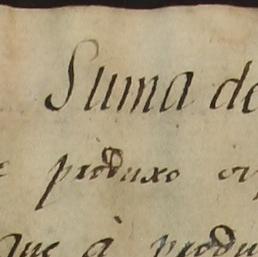 Suma de
produxo
que à produ